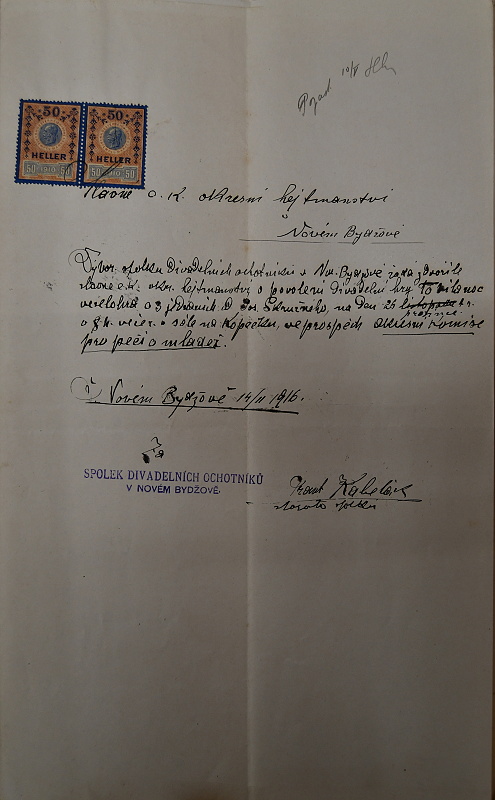 50 50
HELLER HELLER
50 1910 50 50 1910 50
Slavné c. k. okresní hejtmanství
v Novém Bydžově
Výbor spolku Divadelních ochotníků v Nov. Bydžově žádá zdvořile
slavné c. k. okr. hejtmanství o povolení divadelní hry To milenec
veselohra o 3 jednáních od Jos. Skružného, na den 25 listopadu t. r.
prosince
o 8 h. večer v sále na Kopečku, ve prospěch okresní komise
pro péči o mládež.
V Novém Bydžově 14/11 1916.
Za
SPOLEK DIVADELNÍCH OCHOTNÍKŮ
V NOVÉM BYDŽOVĚ.
Frant. Kabeláč
starosta spolku